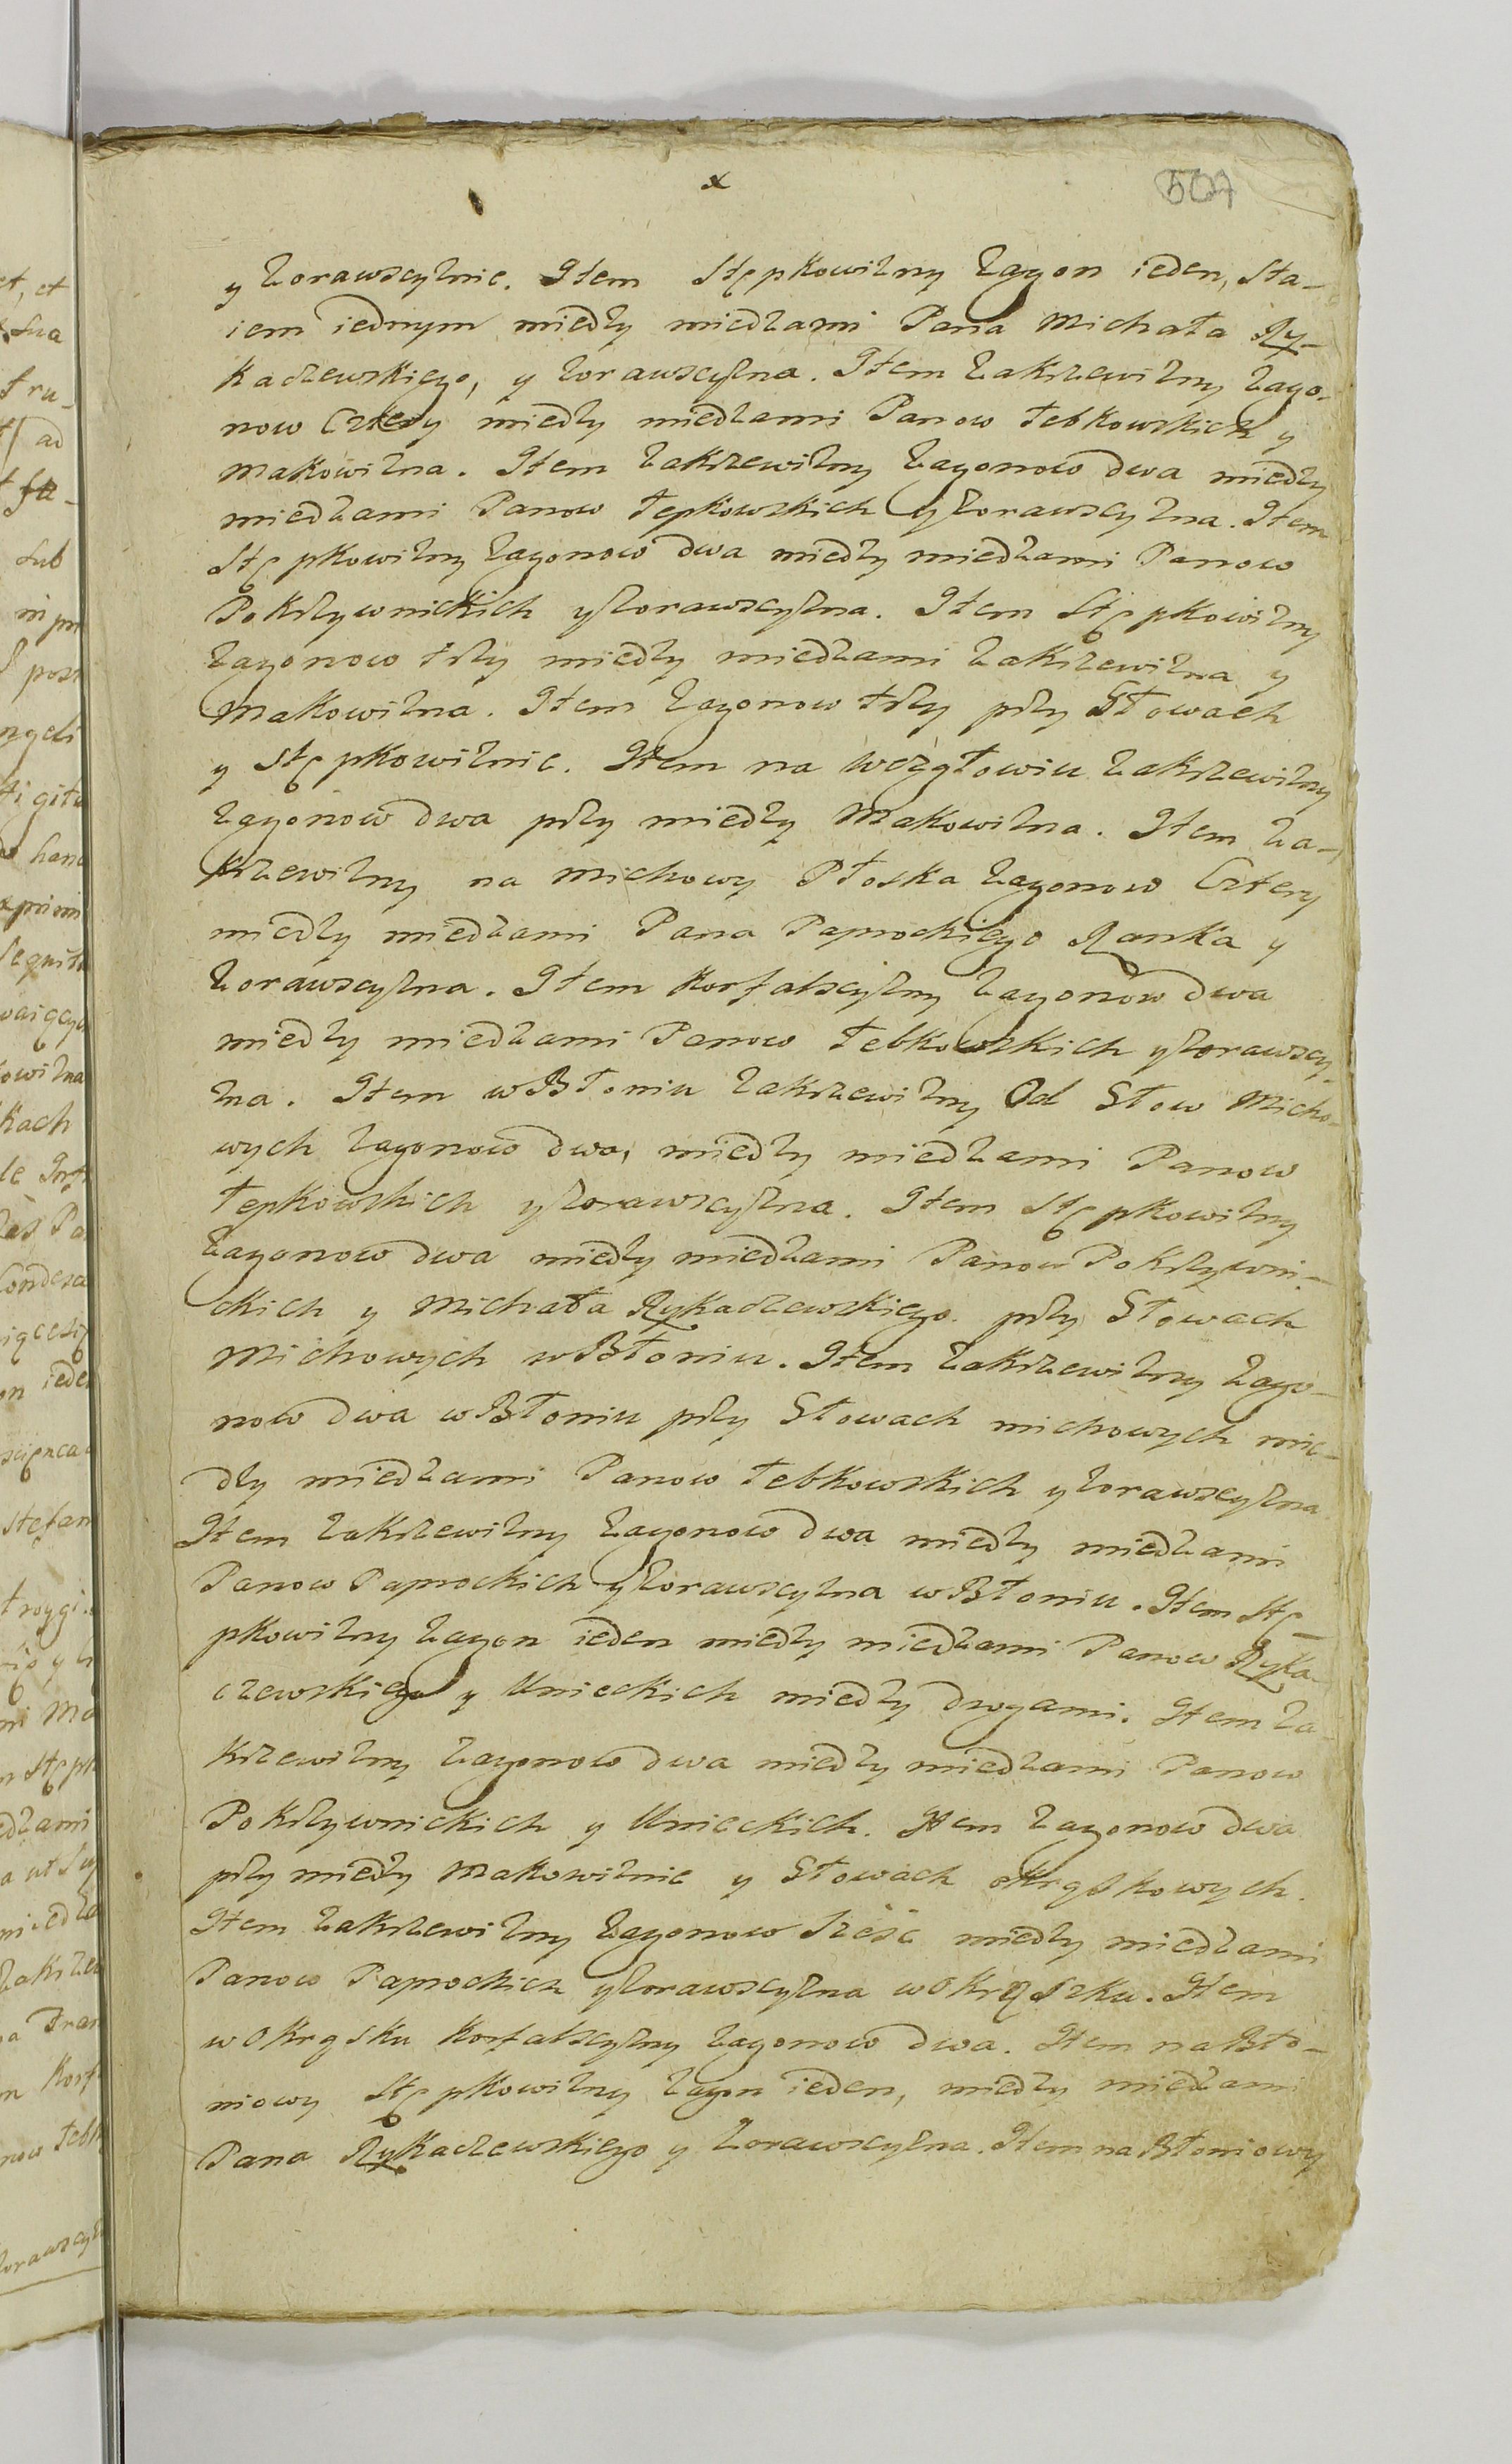 x
507
y Zorawscyznie. Item Stępkowizny Zagon ieden, Sta-
iem iednym miedzy miedzami Pana Michała Ry-
kaczewskiego, y Zorawscyzna. Item Zakrzewizny Zago-
now Cztery miedzy miedzami Panow Łebkowskich y
Makowizna. Item Zakrzewizny Zagonow dwa miedzy
miedzami Panow Łepkowskich y Zorawscyzna. Item
Stępkowizny Zagonow dwa miedzy miedzami Panow
Pokrzywnickich y Zorawscyzna. Item Stępkowizny
Zagonow trzy miedzy miedzami Zakrzewizna y
Makowizna. Item Zagonow trzy przy Stowach
y Stępkowiznie. Item na Wezgłowiu Zakrzewizny
Zagonow dwa przy miedzy Makowizna. Item Za-
krzewizny na Michowy Płoska Zagonow Cztery
miedzy miedzami Pana Paprockiego Ranka y
Zorawscyzna. Item Korfatscyzny Zagonow dwa
miedzy miedzami Panow Łebkowskich y Zorawscy-
zna. Item w Błoniu Zakrzewizny Od Stow Micho-
wych Zagonow dwa, miedzy miedzami Panow
Łepkowskich y Zorawscyzna. Item Stępkowizny
Zagonow dwa miedzy miedzami Panow Pokrzywni-
ckich y Michała Rykaczewskiego przy Stowach
Michowych w Błoniu. Item Zakrzewizny Zago-
now dwa w Błoniu przy Stowach michowych mie-
dzy miedzami Panow Łebkowskich y Zorawscyzna
Item Zakrzewizny Zagonow dwa miedzy miedzami
Panow Paprockich y Zorawscyzna w Błoniu. Item Stę-
pkowizny Zagon ieden miedzy miedzami Panow Ryka-
czewskiego y Unieckich miedzy drogami. Item Za-
krzewizny Zagonow dwa miedzy miedzami Panow
Pokrzywnickich y Unieckich. Item Zagonow dwa
przy miedzy Makowiznie y Stowach okrąskowych.
Item Zakrzewizny Zagonow Sześć miedzy miedzami
Panow Paprockich y Zorawscyzna w Okrąszku. Item
w Okrąsku Korfatscyzny Zagonow dwa. Item na Bło-
niowy Stępkowizny Zagon ieden, miedzy miedzami
Pana Rykaczewskiego y Zorawscyzna. Item na Błoniowy